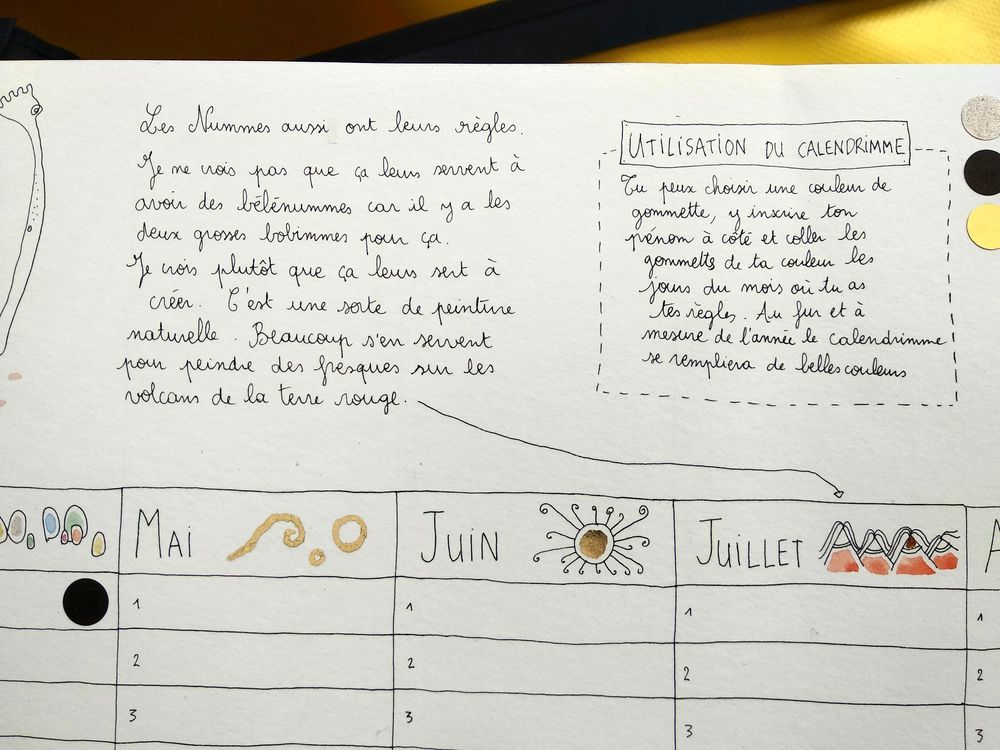 Les Nummes aussi ont leurs règles.
Je ne crois pas que ça leurs servent à
avoir des bélénummes car il y a les
deux grosses bobimmes pour ça.
Je crois plutôt que ça leurs sert à
créer. C'est une sorte de peinture
naturelle. Beaucoup s'en servent
pour peindre des fresques sur les
volcans de la terre rouge.
UTILISATION DU CALENDRIMME
Tu peux choisir une couleur de
gommette, y inscrire ton
prénom à côté et coller les
gommetts de ta couleur les
jours du mois où tu as
tes règles. Au fur et à
mesure de l'année le calendrimme
se rempliera de belles couleurs
MAI
JUIN
JUILLET
A
1
1
1
1
2
2
2
2
3
3
3
3